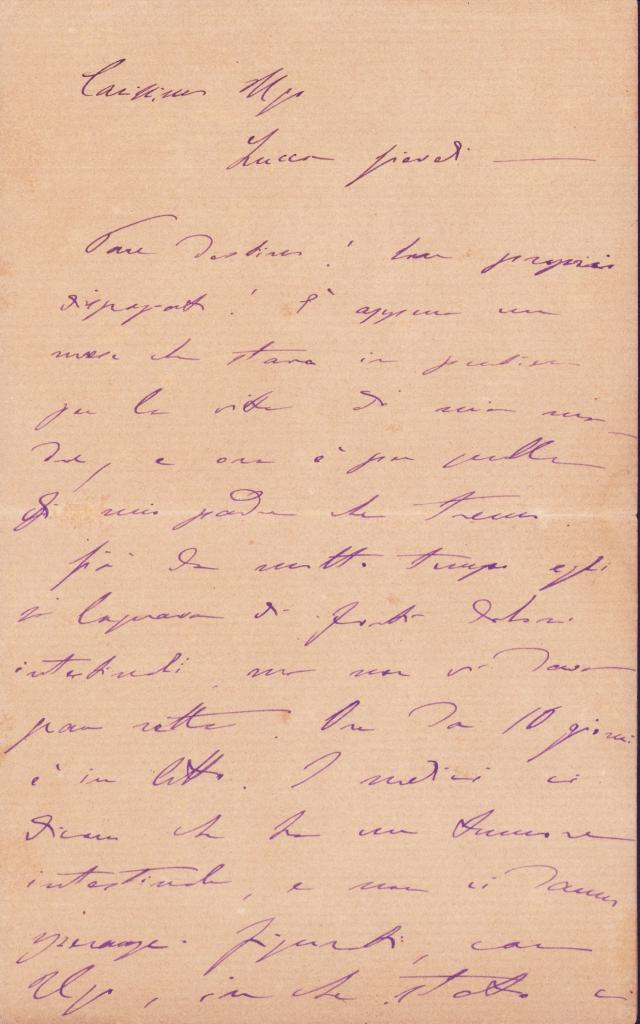 Carissimo Ugo
Lucca giovedì
Pare destino! Son proprio
disperato! È appena un
mese che stava in pensiero
per la vita di mia ma-
dre, e ora è per quella
di mio padre che tremo
già da molto tempo egli
si lagnava di forti dolori
intestinali, ma non vi dava
gran retta. Ora da 10 giorni
è in letto. I medici ci
dicono che ha un tumore
intestinale, e non ci danno
speranze. Figurati, caro
Ugo, in che stato è